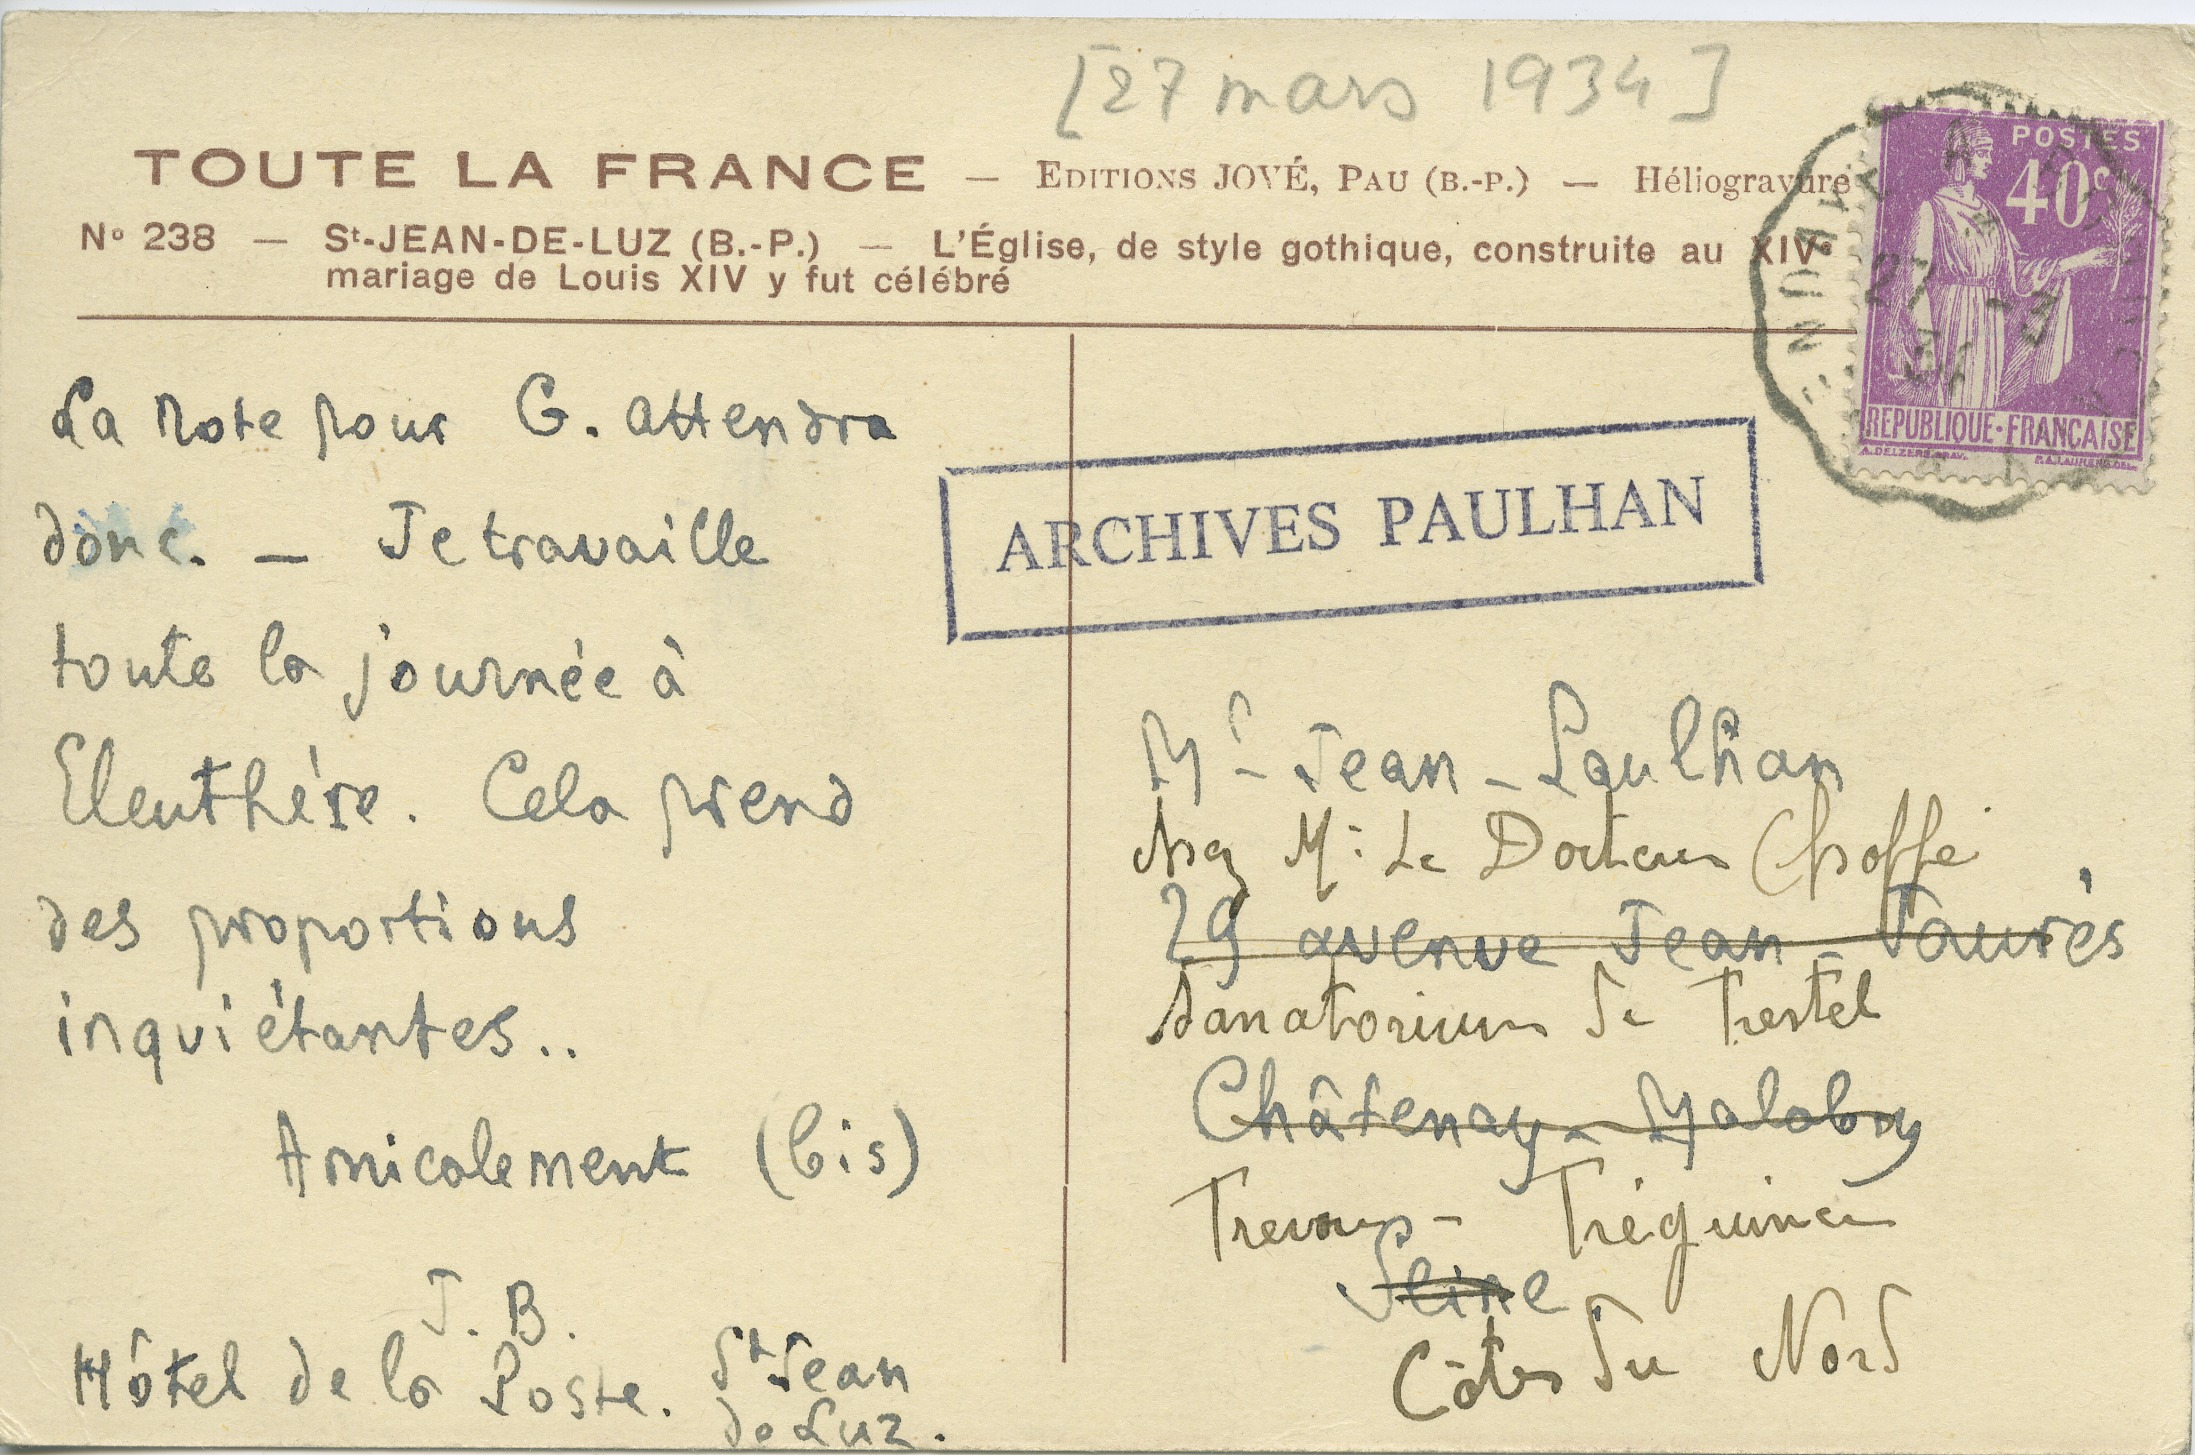 [27 mars 1934]
TOUTE LA FRANCE — EDITIONS JOVÉ, PAU (B.-P.) — Héliogravure
No 238 — St-JEAN-DE-LUZ (B.-P.) — L'Église, de style gothique, construite au XIVe
mariage de Louis XIV y fut célébré
POSTES
40c
27 -3
34
REPUBLIQUE·FRANÇAISE
A.DELZERS.GRAV. P.A.LAURENS.DEL.
ARCHIVES PAULHAN
La note pour G. attendra
donc. — Je travaille
toute la journée à
Eleuthère. Cela prend
des proportions
inquiétantes..
Amicalement (bis)
J. B.
Hôtel de la Poste. St Jean
de Luz.
Mr Jean-Paulhan
chez Mr Le Docteur Choffé
29 avenue Jean Jaurès
Sanatorium de Trestel
Châtenay-Malabry
Trévou- Tréguinec
Seine
Côtes du Nord